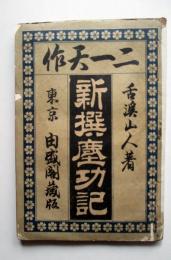 二一天作
舌溪山人著
新撰塵功記
東京 由盛閣藏版